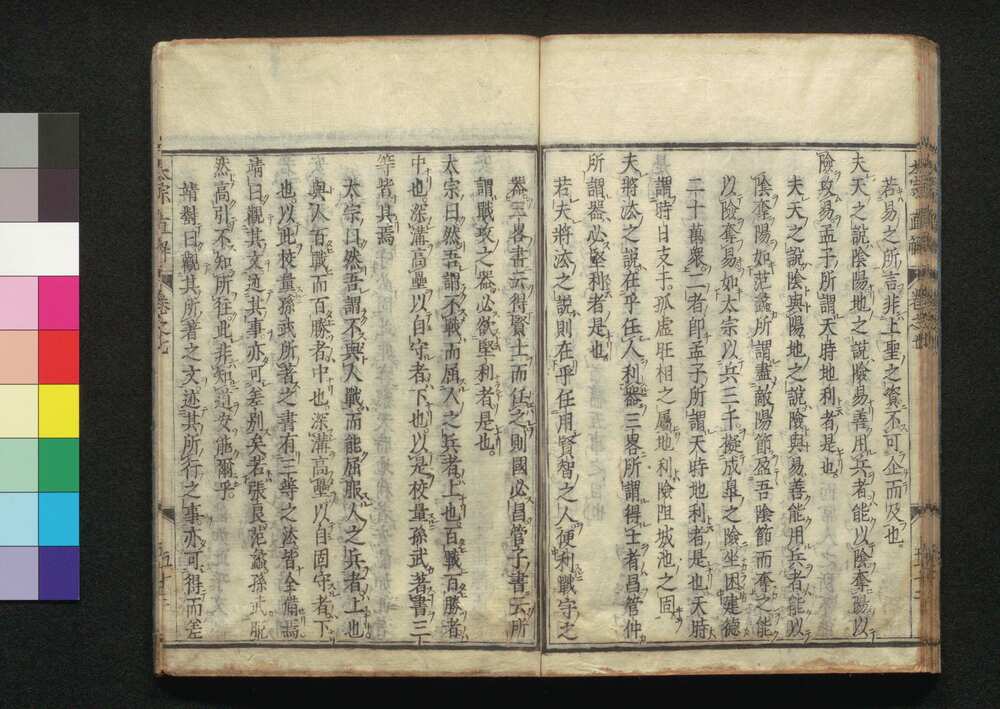 若易之所言非上聖之資不可企而及也
夫天之說陰陽地之說險易善用兵者能以陰奪陽以
險攻易孟子所謂天時地利者是也
夫天之說陰與陽地之說險與易善能用兵者能以
陰奪陽如范蠡所謂盡敵陽節盈吾陰節而奪之能
以險奪易如太宗以兵三千擬成皐之險坐困建德
二十萬衆二者卽孟子所謂天時地利者是也天時
謂時日支干孤虛旺相之屬地利險阻城池之固
夫將法之說在乎任人利器三畧所謂得士者昌管仲
所謂器必堅利者是也
若夫將法之說則在乎任用賢智之人便利戰守之
器三畧書云得賢士而任之則國必昌管子書云所
謂戰攻之器必欲堅利者是也
太宗曰然吾謂不戰而屈人之兵者上也百戰百勝者
中也深溝高壘以自守者下也以是校量孫武著書三
等皆具焉
太宗曰然吾謂不與人戰而能屈服人之兵者上也
與人百戰而百勝者中也深溝高壘以自固守者下
也以此校量孫武所著之書有三等之法皆全備焉
靖曰觀其文迹其事亦可差別矣若張良范蠡孫武脫
然高引不知所往此非知道安能爾乎
靖對曰觀其所著之文迹其所行之事亦可得而差
卷之七
五十三